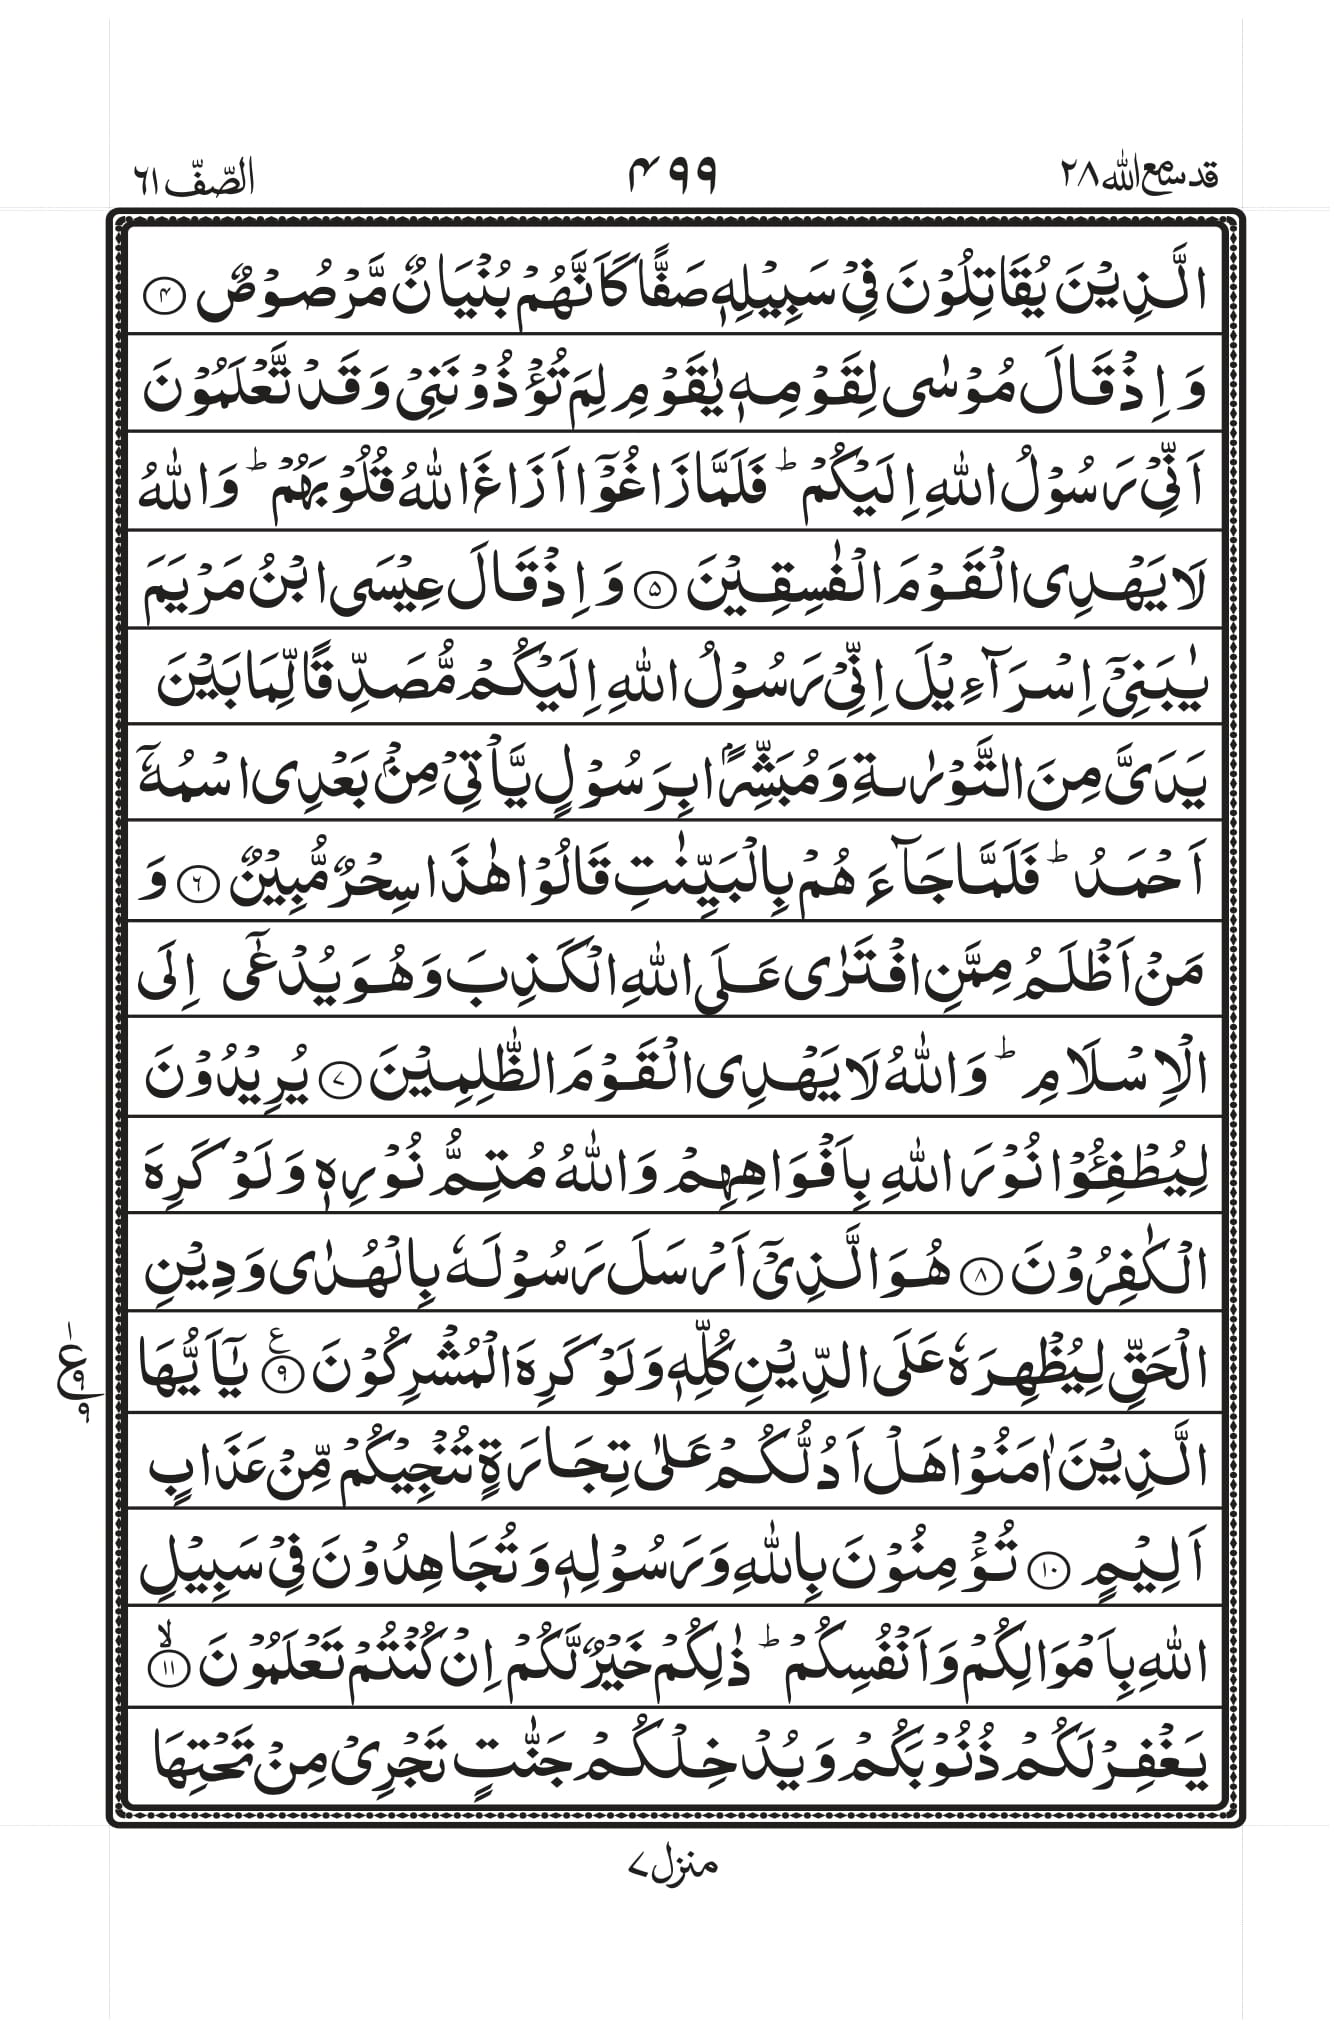 قد سمع الله ٢٨
۴۹۹
الصّفّ ٦١
الَّذِيْنَ يُقَاتِلُوْنَ فِيْ سَبِيْلِهٖ صَفًّا كَاَنَّهُمْ بُنْيَانٌ مَّرْصُوْصٌ ۴
وَ اِذْ قَالَ مُوْسٰى لِقَوْمِهٖ يٰقَوْمِ لِمَ تُؤْذُوْنَنِيْ وَقَدْ تَّعْلَمُوْنَ
اَنِّيْ رَسُوْلُ اللّٰهِ اِلَيْكُمْ ؕ فَلَمَّا زَاغُوْۤا اَزَاغَ اللّٰهُ قُلُوْبَهُمْ ؕ وَاللّٰهُ
لَا يَهْدِى الْقَوْمَ الْفٰسِقِيْنَ ۵ وَ اِذْ قَالَ عِيْسَى ابْنُ مَرْيَمَ
يٰبَنِيْۤ اِسْرَآءِيْلَ اِنِّيْ رَسُوْلُ اللّٰهِ اِلَيْكُمْ مُّصَدِّقًا لِّمَا بَيْنَ
يَدَىَّ مِنَ التَّوْرٰىةِ وَمُبَشِّرًۢا بِرَسُوْلٍ يَّاْتِيْ مِنْۢ بَعْدِى اسْمُهٗۤ
اَحْمَدُ ؕ فَلَمَّا جَآءَ هُمْ بِالْبَيِّنٰتِ قَالُوْا هٰذَا سِحْرٌ مُّبِيْنٌ ٦ وَ
مَنْ اَظْلَمُ مِمَّنِ افْتَرٰى عَلَى اللّٰهِ الْكَذِبَ وَهُوَ يُدْعٰۤى اِلَى
الْاِسْلَامِ ؕ وَاللّٰهُ لَا يَهْدِى الْقَوْمَ الظّٰلِمِيْنَ ۷ يُرِيْدُوْنَ
لِيُطْفِـُٔوْا نُوْرَ اللّٰهِ بِاَفْوَاهِهِمْ وَاللّٰهُ مُتِمُّ نُوْرِهٖ وَلَوْ كَرِهَ
الْكٰفِرُوْنَ ۸ هُوَ الَّذِيْۤ اَرْسَلَ رَسُوْلَهٗ بِالْهُدٰى وَدِيْنِ
الْحَقِّ لِيُظْهِرَهٗ عَلَى الدِّيْنِ كُلِّهٖ وَلَوْ كَرِهَ الْمُشْرِكُوْنَ ۹ ع يٰۤاَيُّهَا
ع ۹ ۹
الَّذِيْنَ اٰمَنُوْا هَلْ اَدُلُّكُمْ عَلٰى تِجَارَةٍ تُنْجِيْكُمْ مِّنْ عَذَابٍ
اَلِيْمٍ ۱۰ تُؤْمِنُوْنَ بِاللّٰهِ وَرَسُوْلِهٖ وَتُجَاهِدُوْنَ فِيْ سَبِيْلِ
اللّٰهِ بِاَمْوَالِكُمْ وَاَنْفُسِكُمْ ؕ ذٰلِكُمْ خَيْرٌ لَّكُمْ اِنْ كُنْتُمْ تَعْلَمُوْنَ ۱۱ ۙ
يَغْفِرْ لَكُمْ ذُنُوْبَكُمْ وَيُدْخِلْكُمْ جَنّٰتٍ تَجْرِيْ مِنْ تَحْتِهَا
منزل ۷